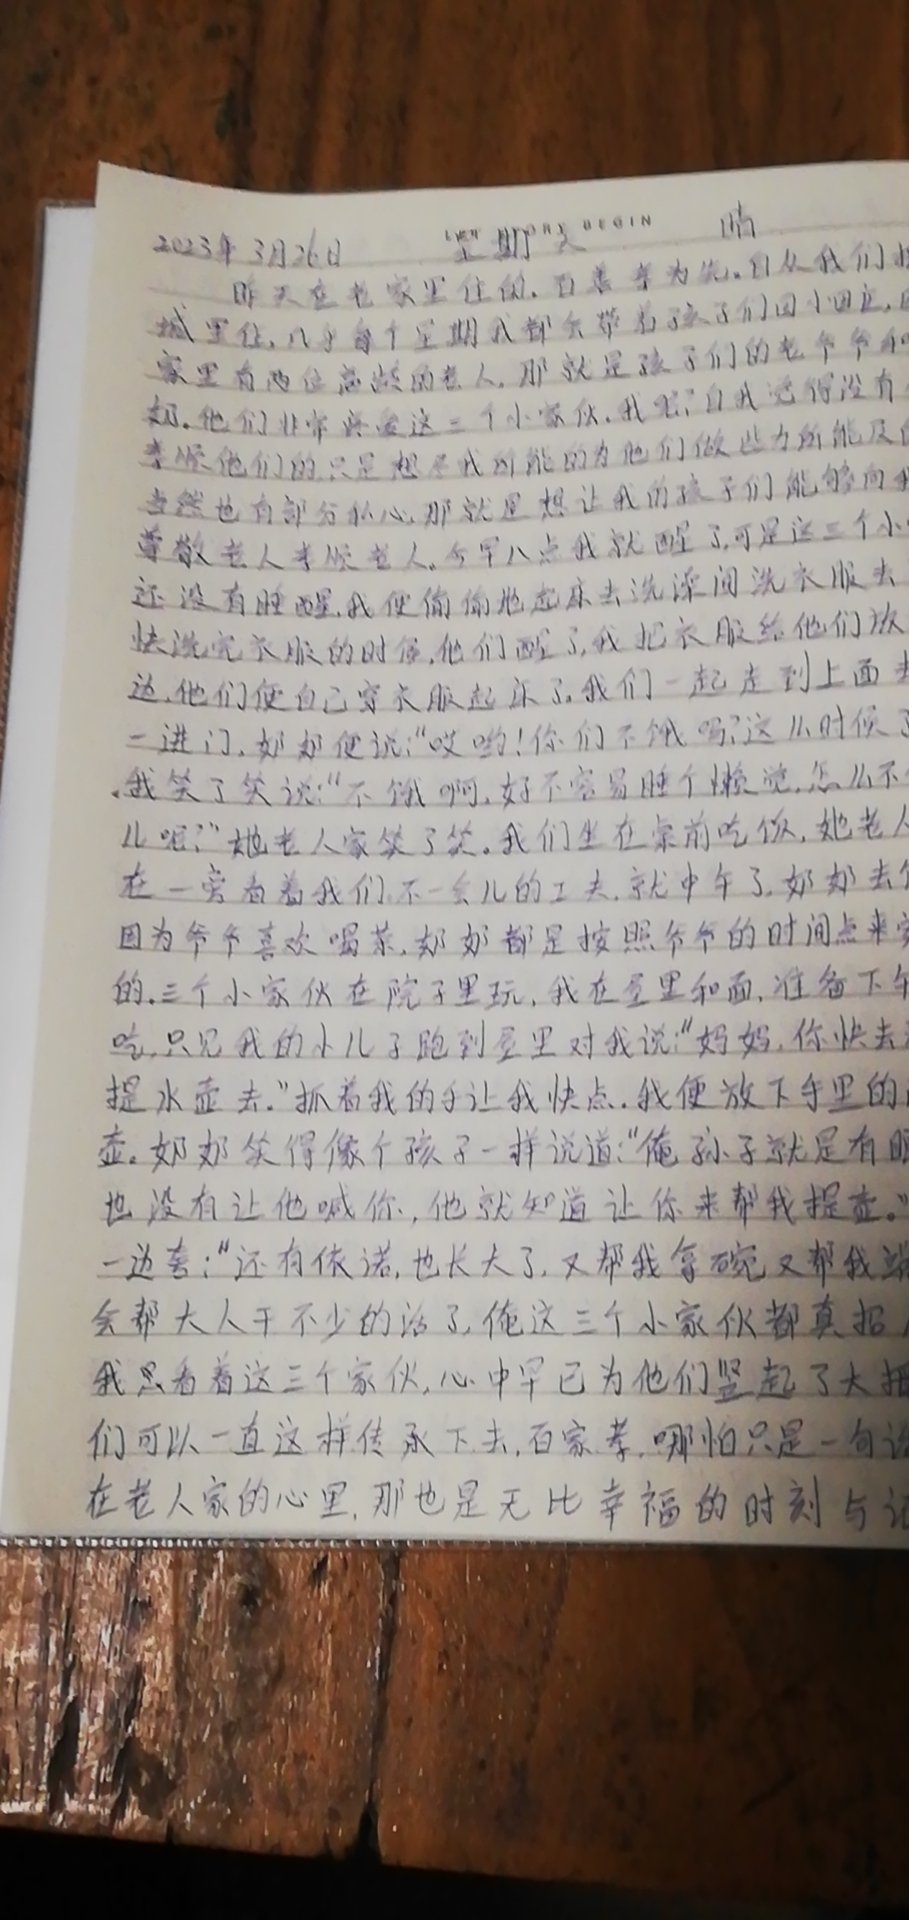 LIFE STORY BEGIN
2023年3月26日 星期天 晴
昨天在老家里住的.百善孝为先.自从我们
城里住,几乎每个星期我都会带着孩子们回小回庄,
家里有两位高龄的老人,那就是孩子们的老爷爷和
奶.他们非常疼爱这三个小家伙.我呢?自我觉得没有
孝顺他们的.只是想尽我所能的为他们做些力所能及
当然也有部分私心,那就是想让我的孩子们能够向我
尊敬老人孝顺老人.今早八点我就醒了,可是这三个小
还没有睡醒.我便偷偷地起床去洗澡间洗衣服去
快洗完衣服的时候,他们醒了,我把衣服给他们放
边,他们便自己穿衣服起床了.我们一起走到上面
一进门,奶奶便说:“哎哟!你们不饿吗?这么时候了
.我笑了笑说:“不饿啊,好不容易睡个懒觉,怎么不
儿呢?”她老人家笑了笑.我们坐在桌前吃饭,她老人
在一旁看着我们.不一会儿的工夫.就中午了,奶奶去
因为爷爷喜欢喝茶,奶奶都是按照爷爷的时间点来
的.三个小家伙在院子里玩,我在屋里和面,准备下午
吃,只见我的小儿子跑到屋里对我说:“妈妈,你快去
提水壶去.”抓着我的手让我快点.我便放下手里的
壶.奶奶笑得像个孩子一样说道:“俺孙子就是有眼
也没有让他喊你,他就知道让你来帮我提壶.”
一边夸:“还有依诺,也长大了,又帮我拿碗又帮我端
会帮大人干不少的活了,俺这三个小家伙都真招
我只看着这三个家伙,心中早已为他们竖起了大拇
们可以一直这样传承下去.百家孝.哪怕只是一句
在老人家的心里,那也是无比幸福的时刻与